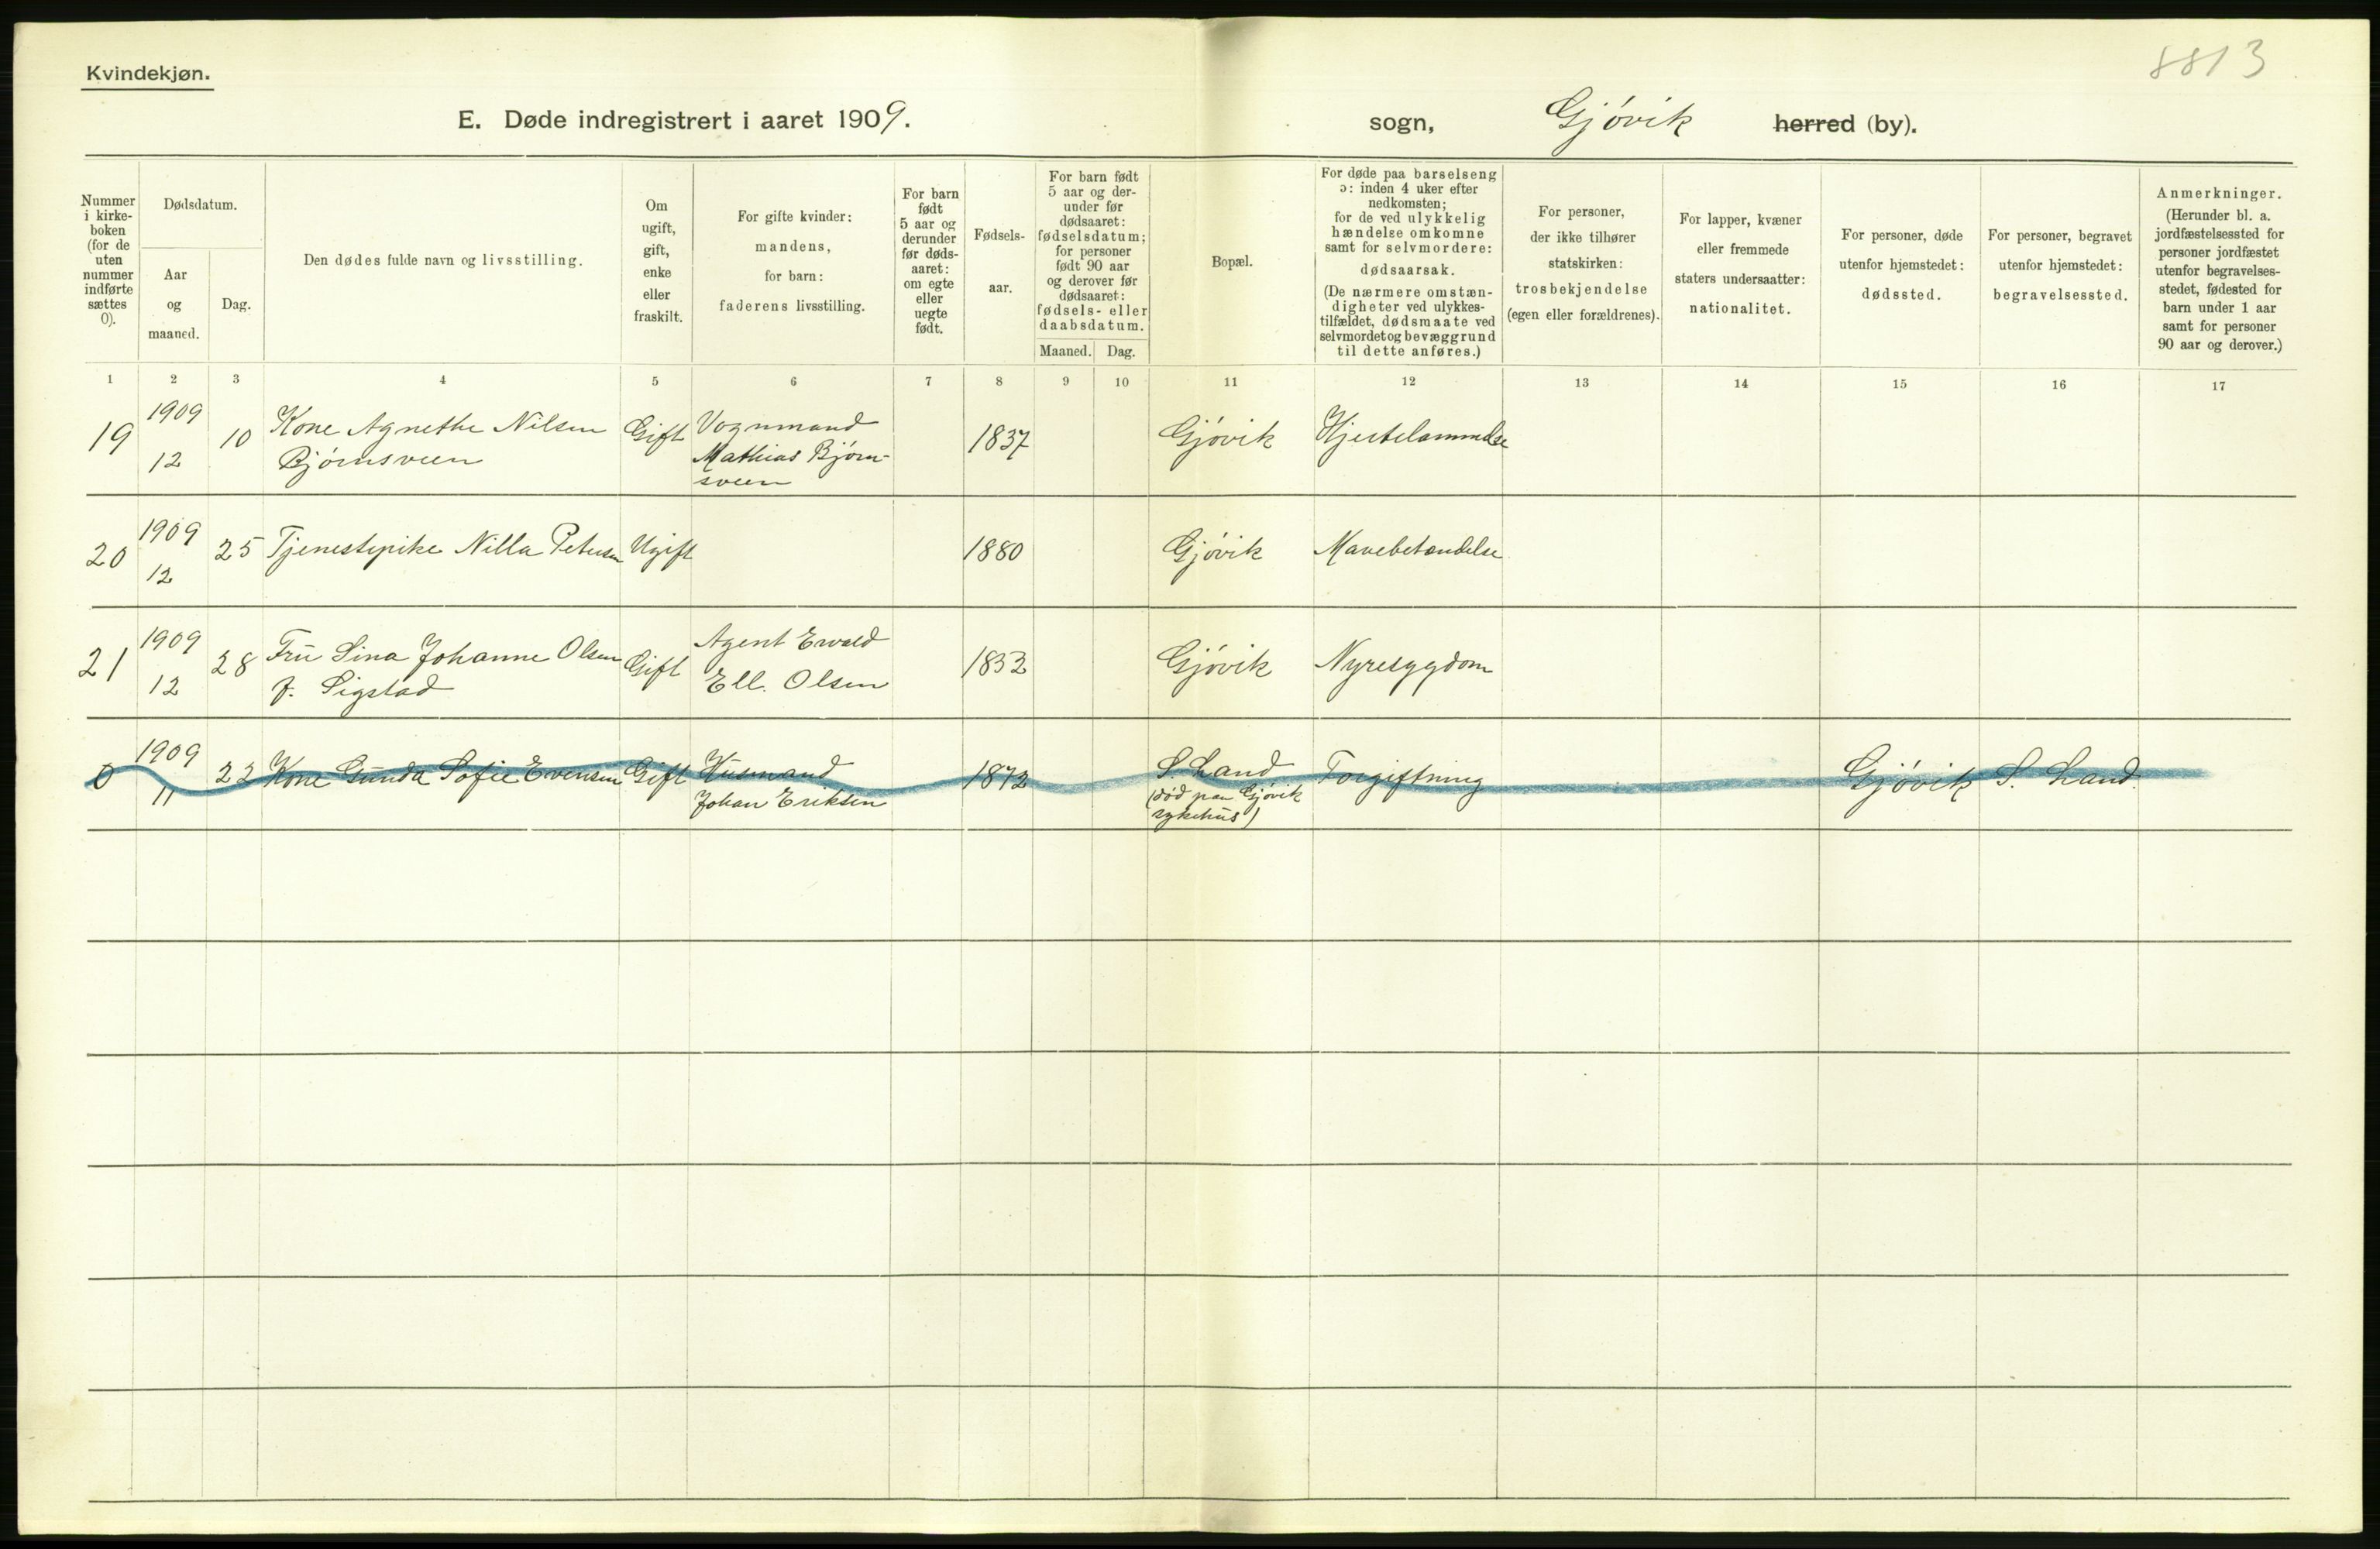 Kvindekjøn.
8813
E. Døde indregistrert i aaret 1909.
sogn, Gjøvik herred (by).
Nummer i kirke-boken (for de uten nummer indførte sættes 0).
Dødsdatum.
Aar og maaned.
Dag.
Den dødes fulde navn og livsstilling.
Om ugift, gift, enke eller fraskilt.
For gifte kvinder: mandens, for barn: faderens livsstilling.
For barn født 5 aar og derunder før døds-aaret: om egte eller uegte født.
Fødsels-aar.
For barn født 5 aar og der-under før dødsaaret: fødselsdatum; for personer født 90 aar og derover før dødsaaret: fødsels- eller daabsdatum.
Maaned. Dag.
Bopæl.
For døde paa barselseng ɔ: inden 4 uker efter nedkomsten; for de ved ulykkelig hændelse omkomne samt for selvmordere: dødsaarsak.
(De nærmere omstæn-digheter ved ulykkes-tilfældet, dødsmaate ved selvmordet og bevæggrund til dette anføres.)
For personer, der ikke tilhører statskirken: trosbekjendelse (egen eller forældrenes).
For lapper, kvæner eller fremmede staters undersaatter: nationalitet.
For personer, døde utenfor hjemstedet: dødssted.
For personer, begravet utenfor hjemstedet: begravelsessted.
Anmerkninger.
(Herunder bl. a. jordfæstelsessted for personer jordfæstet utenfor begravelses-stedet, fødested for barn under 1 aar samt for personer 90 aar og derover.)
1 2 3 4 5 6 7 8 9 10 11 12 13 14 15 16 17
19 1909 12 10 Kone Agnethe Nilsen Bjørnsveen Gift Vognmand Mathias Bjørn-sveen 1837 Gjøvik Hjertelammelse
20 1909 12 25 Tjenestepike Nilla Petersen Ugift 1880 Gjøvik Mavebetændelse
21 1909 12 28 Fru Sina Johanne Olsen f. Sigstad Gift Agent Ewald Ell. Olsen 1852 Gjøvik Nyresygdom
0 1909 11 22 Kone Gunda Sofie Evensen Gift Husmand Johan Eriksen 1872 S. Land (død paa Gjøvik sykehus) Forgiftning Gjøvik S. Land.